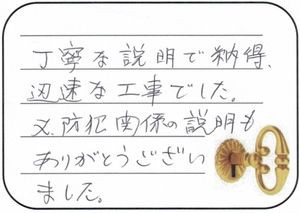 丁寧な説明で納得、
迅速な工事でした。
又、防犯関係の説明も
ありがとうござい
ました。